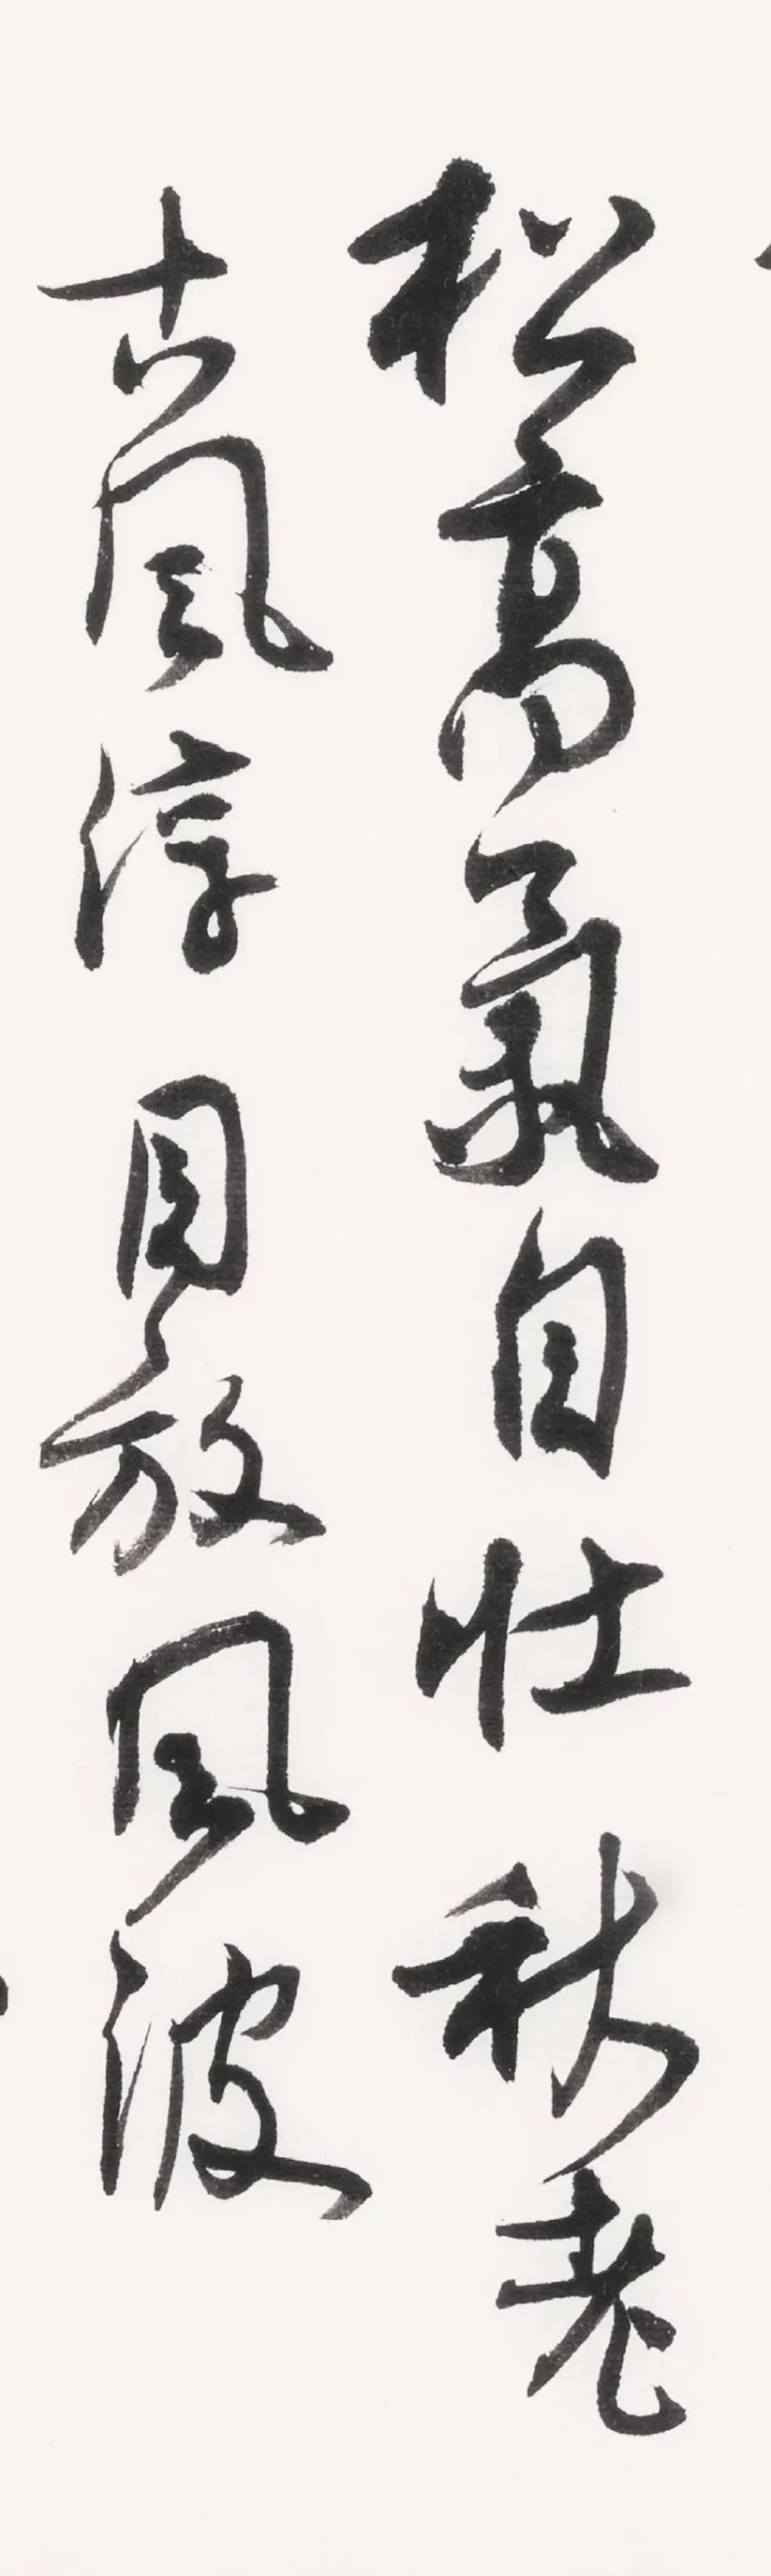 松高氣自壯秋老
古風淳目放風波